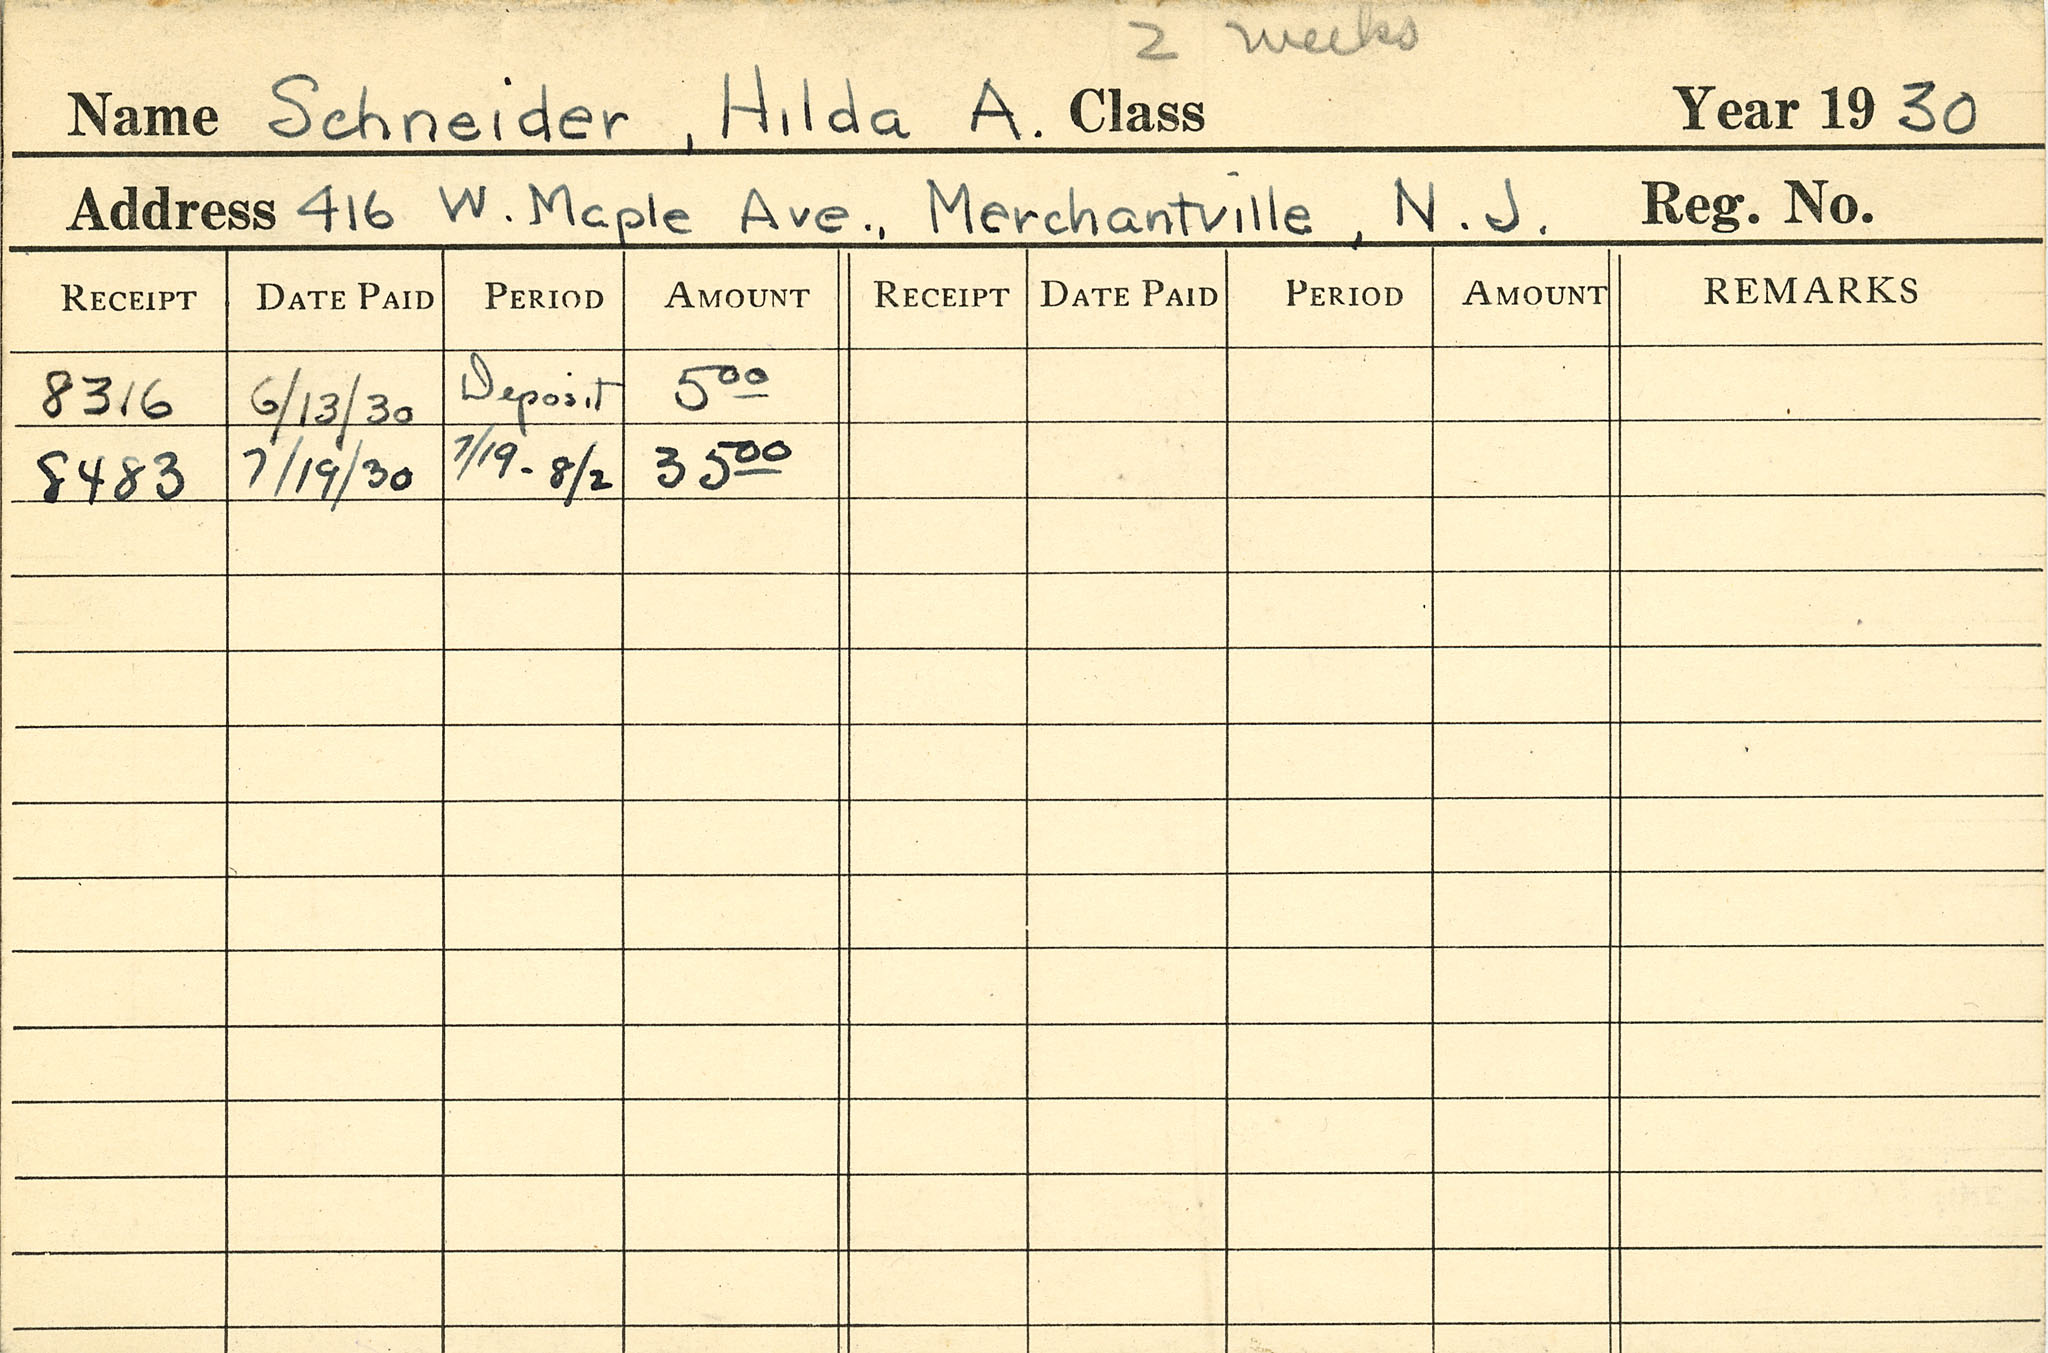 2 weeks
Name Schneider, Hilda A. Class Year 19 30
Address 416 W. Maple Ave., Merchantville, N.J. Reg. No.
RECEIPT DATE PAID PERIOD AMOUNT RECEIPT DATE PAID PERIOD AMOUNT REMARKS
8316 6/13/30 Deposit 5 00
8483 7/19/30 7/19 - 8/2 35 00